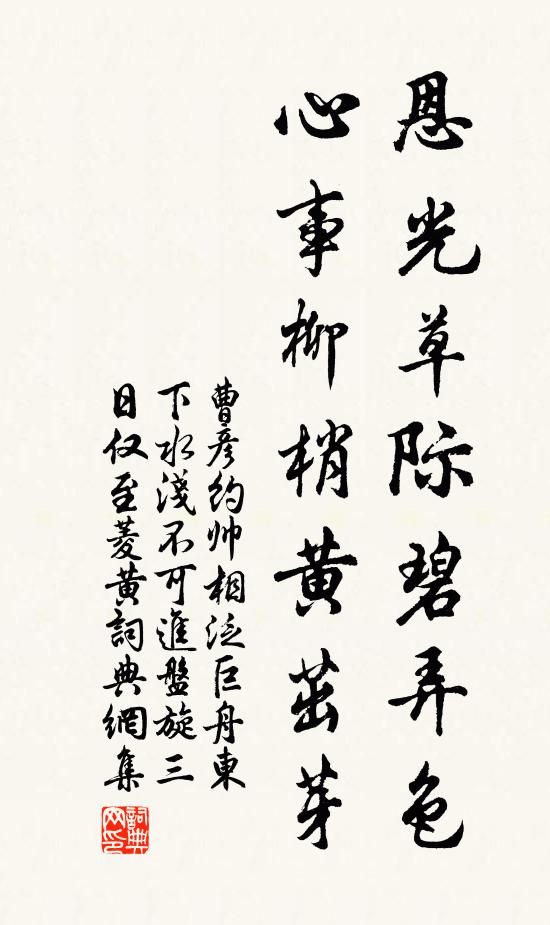 恩光草际碧弄色
心事柳梢黄茁芽
曹彦约帅相泛巨舟東
下水淺不可進盤旋三
日仅至菱黄詞典網集
詞典网印